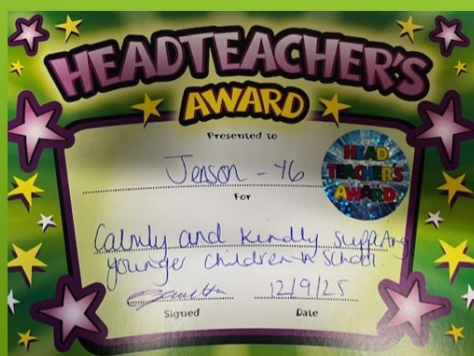 HEADTEACHER'S
AWARD
Presented to
Jenson - Y6
For
HEAD
TEACHER'S
AWARD
Calmly and kindly supporting
younger children in school.
Signed
12/9/25
Date